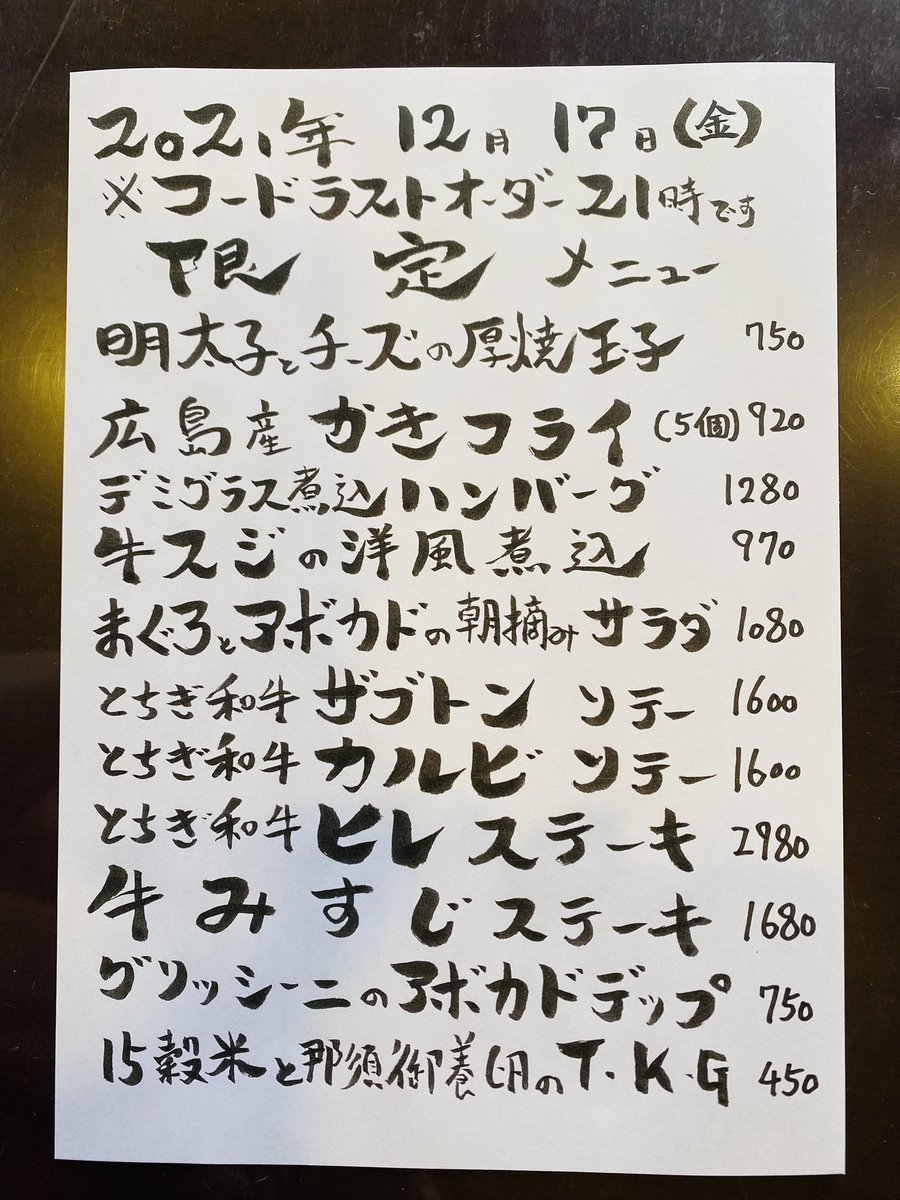 2021年 12月 17日(金)
※フードラストオーダー21時です
限定メニュー
明太子とチーズの厚焼玉子 750
広島産 かきフライ (5個) 920
デミグラス煮込ハンバーグ 1280
牛スジの洋風煮込 970
まぐろとアボカドの朝摘みサラダ 1080
とちぎ和牛 ザブトン ソテー 1600
とちぎ和牛 カルビ ソテー 1600
とちぎ和牛 ヒレステーキ 2980
牛みすじステーキ 1680
グリッシーニのアボカドデップ 750
15穀米と那須御養卵のT.K.G 450